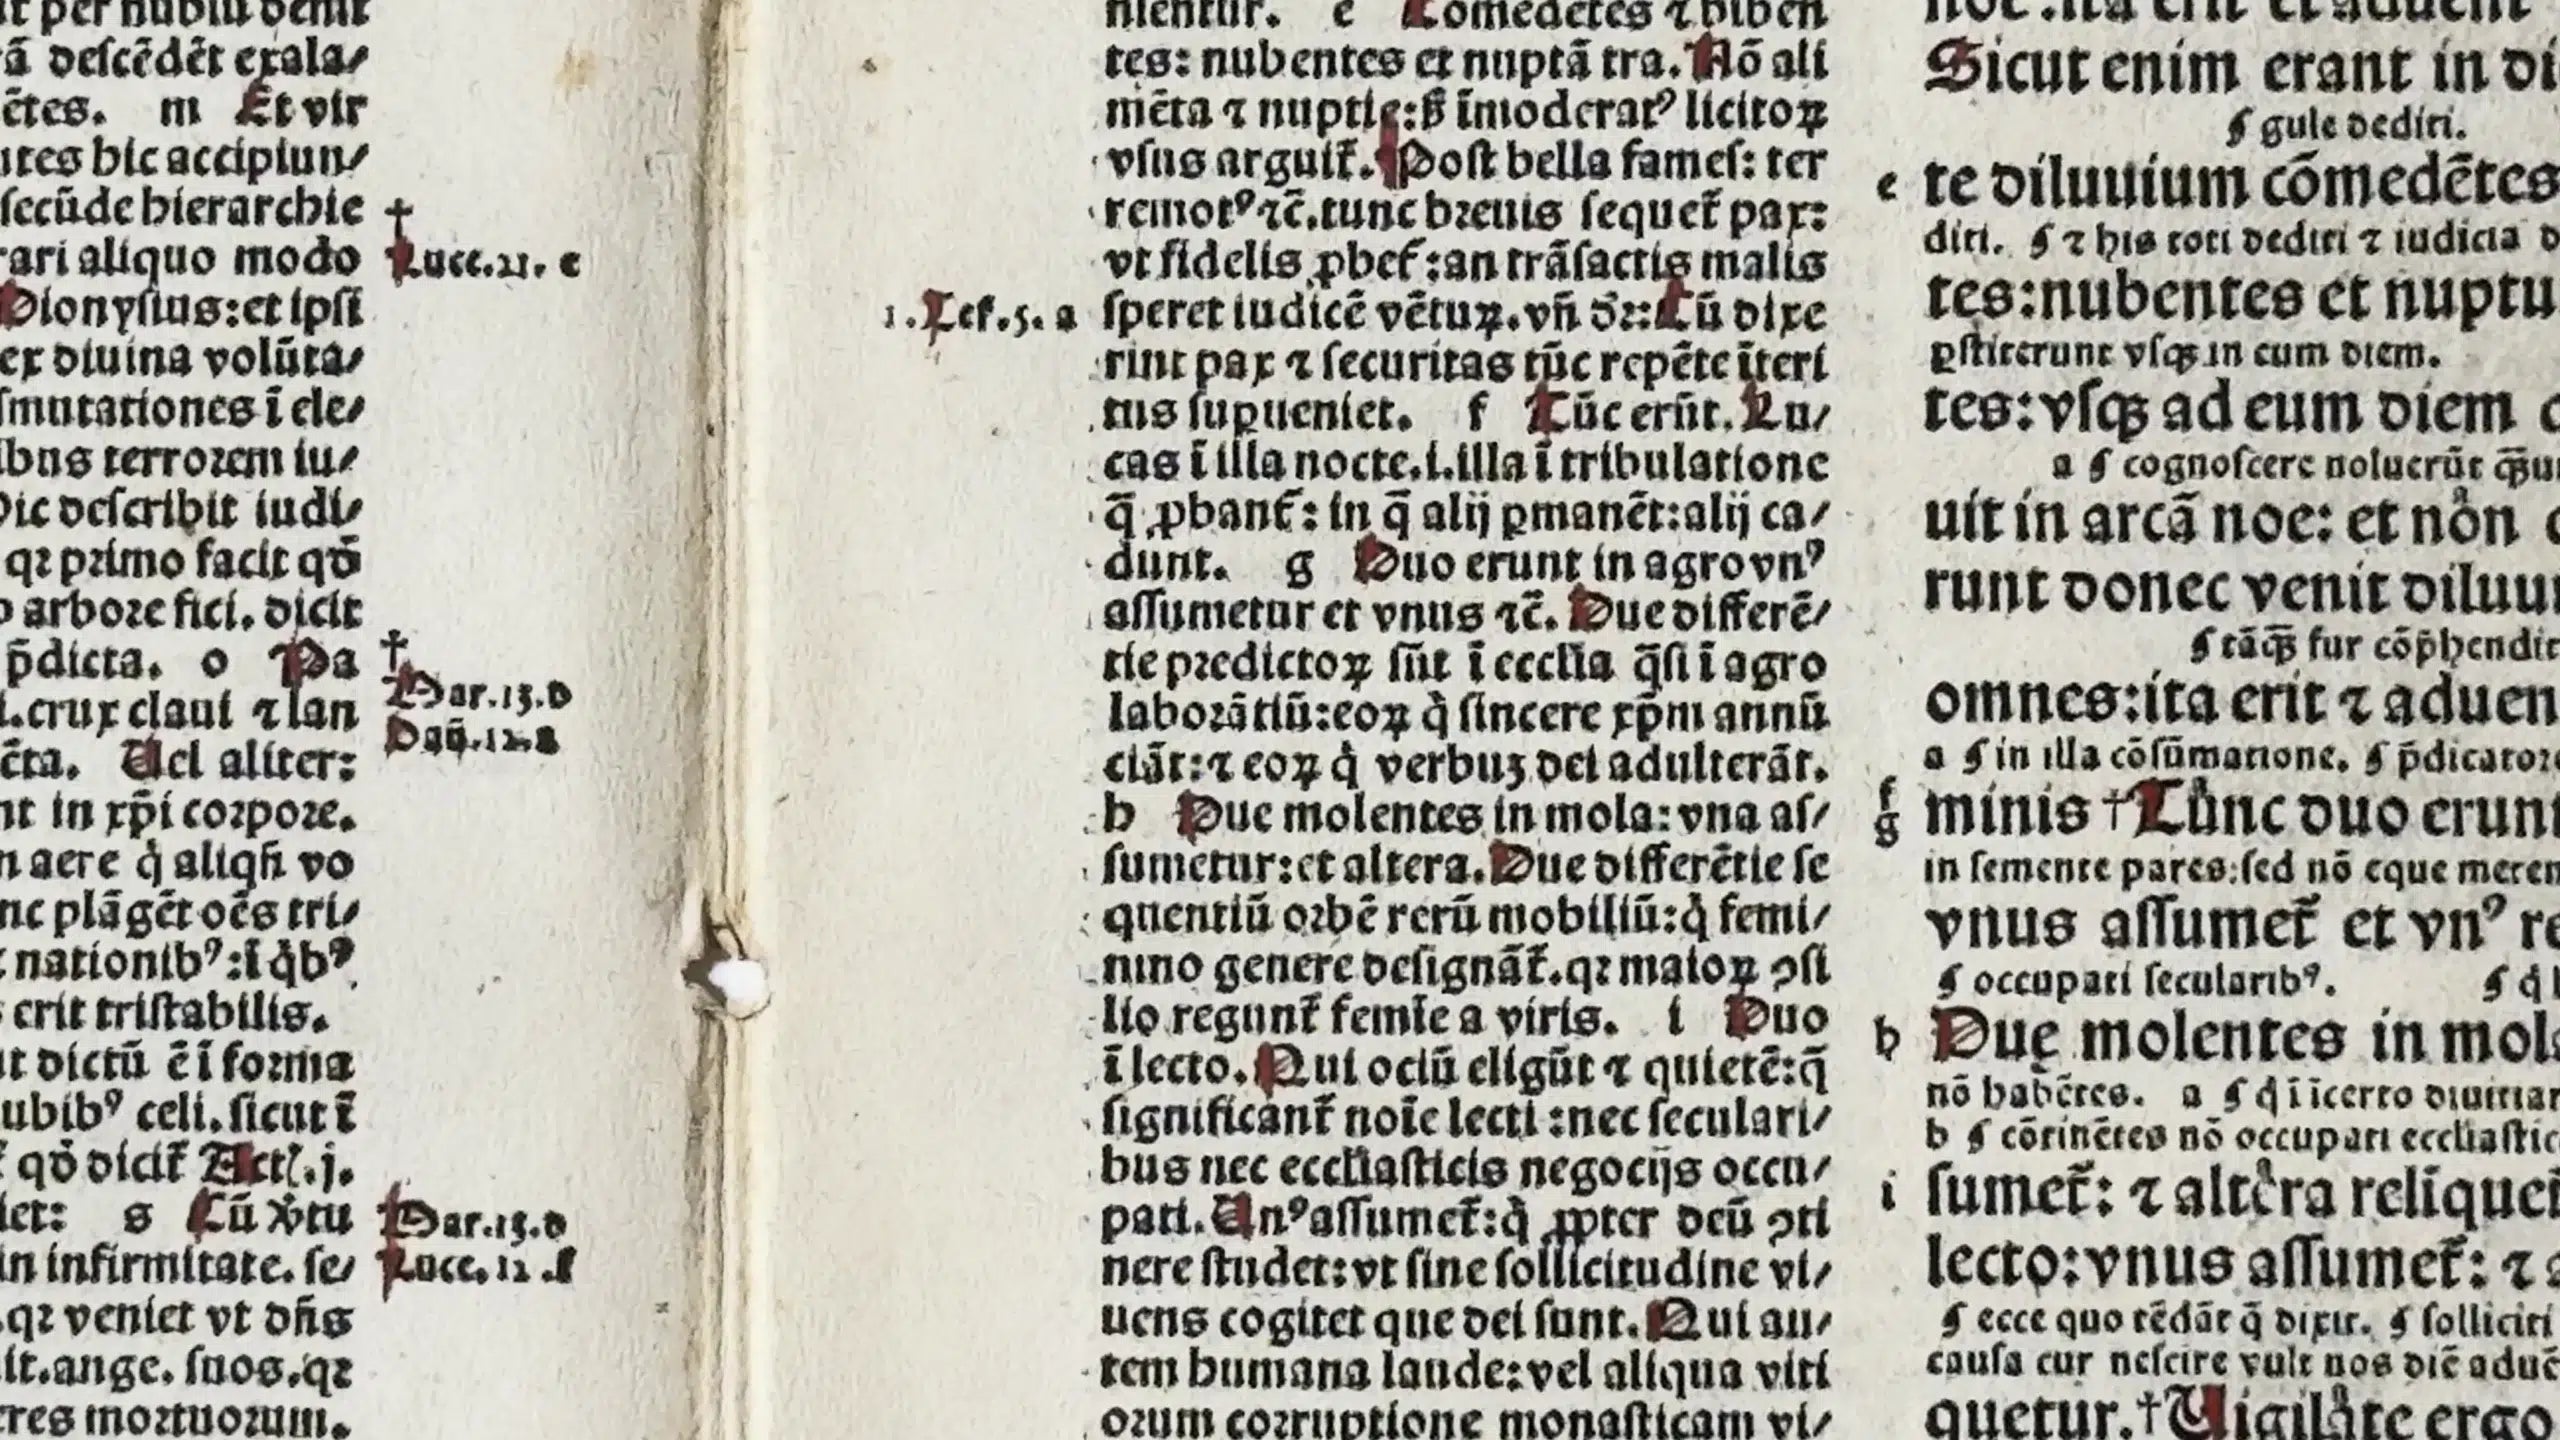 ā descēdēt exala/
ētes. m Et vir
ites hic accipiun/
secūde hierarchie
rari aliquo modo
Dionysius: et ipsi
ex diuina volūta/
smutationes ī ele/
ibus terrorem iu/
Hic describit iudi/
qꝛ primo facit qō
arbore fici. dicit
p̄dicta. o Pa
i. crux claui ⁊ lan
ēta. Uel aliter:
nt in xp̄i corpore.
n aere q̇ aliqñ vo
nc plāgēt oēs tri/
nationibꝰ: ī q̇bꝰ
erit tristabilis.
ut dictū ē ī forma
ubibꝰ celi. sicut ī
qō dicit᷑ Act. j.
let: s Cū v̇tu
in infirmitate. se/
qꝛ veniet vt dn̄s
it. ange. suos. qꝛ
eres mortuorum.
†
Luce. 21. e
†
Mar. 13. d
Dañ. 12. a
Mar. 13. d
Luce. 12. f
nientur. e Comedētes ⁊ biben
tes: nubentes et nuptā tra. Nō ali
mēta ⁊ nuptie: ß īmoderatꝰ licitoꝝ
vsus arguit᷑. Post bella fames: ter
remotꝰ ⁊c̄. tunc breuis sequet᷑ pax:
vt fidelis ꝓbet᷑: an trāsactis malis
1. Tes. 5. a
speret iudicē vētuꝝ. vñ dꝛ: Cū dixe
rint pax ⁊ securitas tūc repēte īteri
tus supꝟueniet. f Tūc erūt. Lu/
cas ī illa nocte. i. illa ī tribulatione
q̄ ꝓbant᷑: in q̄ alij ꝑmanēt: alij ca/
dunt. g Duo erunt in agro vnꝰ
assumetur et vnus ⁊c̄. Due differē/
tie predictoꝝ sūt ī ecclīa q̄si ī agro
laborātiū: eoꝝ q̇ sincere xp̄m annū
ciāt: ⁊ eoꝝ q̇ verbuꝫ dei adulterāt.
h Due molentes in mola: vna as/
sumetur: et altera. Due differētie se
quentiū orbē rerū mobiliū: q̇ femi/
nino genere designāt᷑. qꝛ maioꝝ ꝯsi
lio regunt᷑ femīe a viris. i Duo
ī lecto. Qui ociū eligūt ⁊ quietē: q̄
significant᷑ noīe lecti: nec seculari/
bus nec eccliasticis negocijs occu/
pati. Unꝰ assumet᷑: q̇ ꝓpter deū ꝯti
nere studet: vt sine sollicitudine vi/
uens cogitet que dei sunt. Qui au/
tem humana laude: vel aliqua viti
orum corruptione monasticam vi/
Sicut enim erant in di
¶ gule dediti.
e te diluuium cōmedētes
diti. ¶ ⁊ his toti dediti ⁊ iudicia d
tes: nubentes et nuptu
ꝑstiterunt vsqꝫ in eum diem.
tes: vsqꝫ ad eum diem
a ¶ cognoscere noluerūt
uit in arcā noe: et nōn
runt donec venit diluui
¶ tāqꝫ fur cōp̄hendit
omnes: ita erit ⁊ aduen
a ¶ in illa cōsūmatione. ¶ p̄dicator
f
g minis † Tūnc duo erunt
in semente pares: sed nō eque meren
vnus assumet᷑ et vnꝰ re
¶ occupati secularibꝰ. ¶ q̇
h Due molentes in mola
nō habētes. a ¶ q̇ ī īcerto diuitiar
b ¶ cōtinētes nō occupati eccliastic
i sumet᷑: ⁊ altera reliquet
lecto: vnus assumet᷑: ⁊ a
¶ ecce quo tēdāt q̄ dixit. ¶ solliciti
causa cur nescire vult nos diē aduē
quetur. † Uigilate ergo